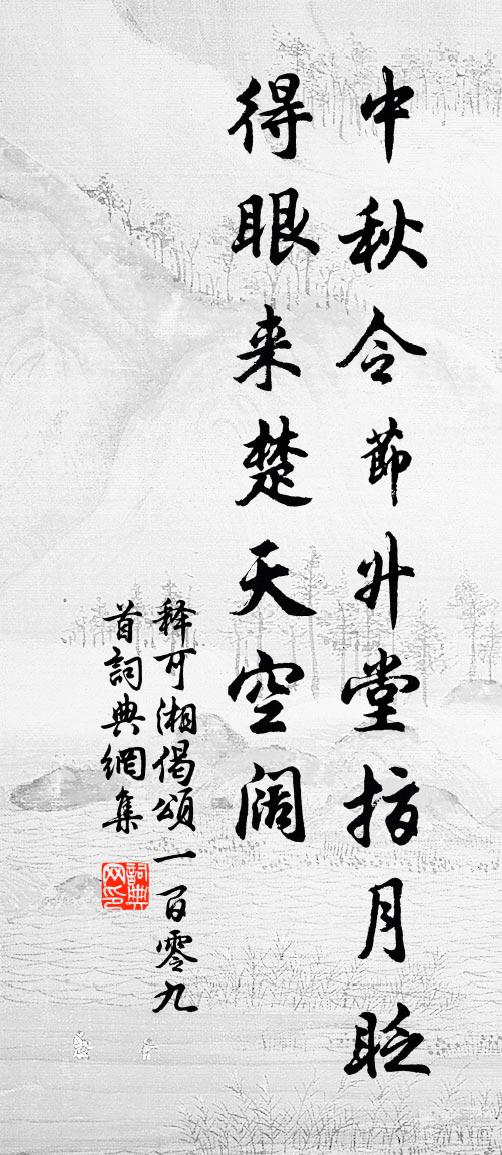 中秋令節升堂指月眨
得眼来楚天空阔
释可湘偈頌一百零九
首詞典網集
詞典网印